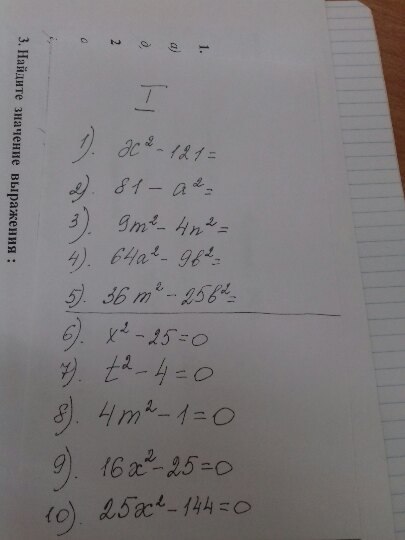 3. Найдите значение выражения :
1.
а)
2
I
1). x² - 121 =
2). 81 - a² =
3). 9m² - 4n² =
4). 64a² - 9b² =
5). 36m² - 25b² =
6). x² - 25 = 0
7). t² - 4 = 0
8). 4m² - 1 = 0
9). 16x² - 25 = 0
10). 25x² - 144 = 0